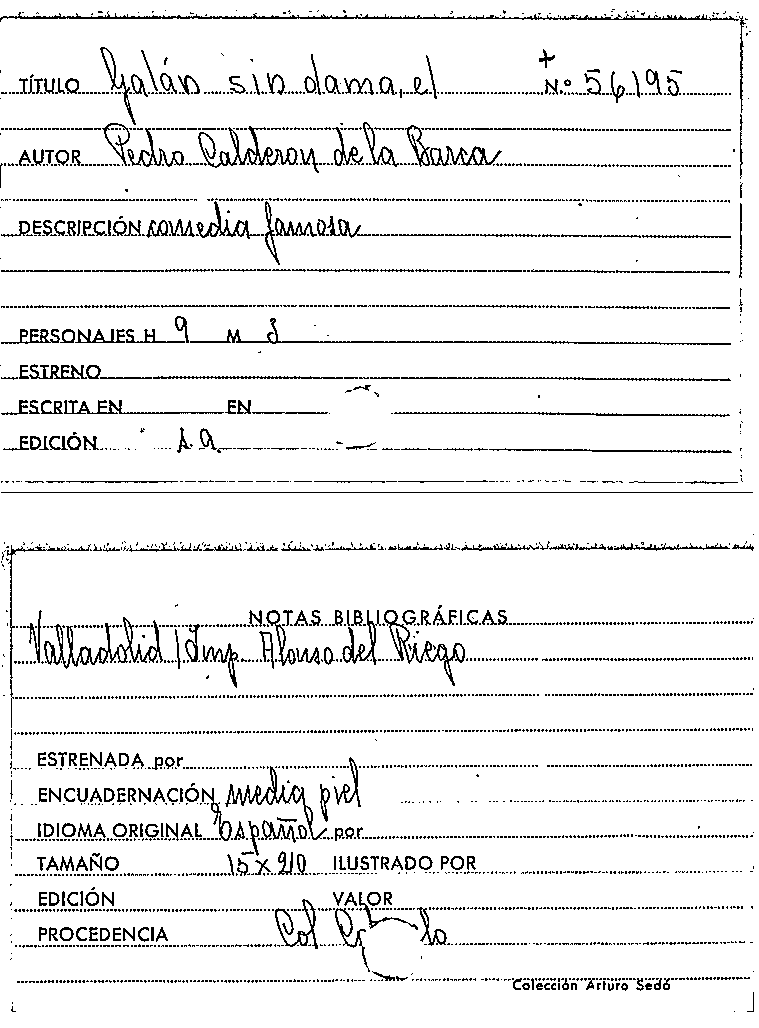 TÍTULO Galán sin dama, el + N.º 56195
AUTOR Pedro Calderon de la Barca
DESCRIPCIÓN comedia famosa
PERSONAJES H 9 M 3
ESTRENO
ESCRITA EN EN
EDICIÓN s.a.
NOTAS BIBLIOGRÁFICAS
Valladolid / Imp. Alonso del Riego
ESTRENADA por
ENCUADERNACIÓN media piel
IDIOMA ORIGINAL Español por
TAMAÑO 15 x 210 ILUSTRADO POR
EDICIÓN VALOR
PROCEDENCIA Col
Colección Arturo Sedó